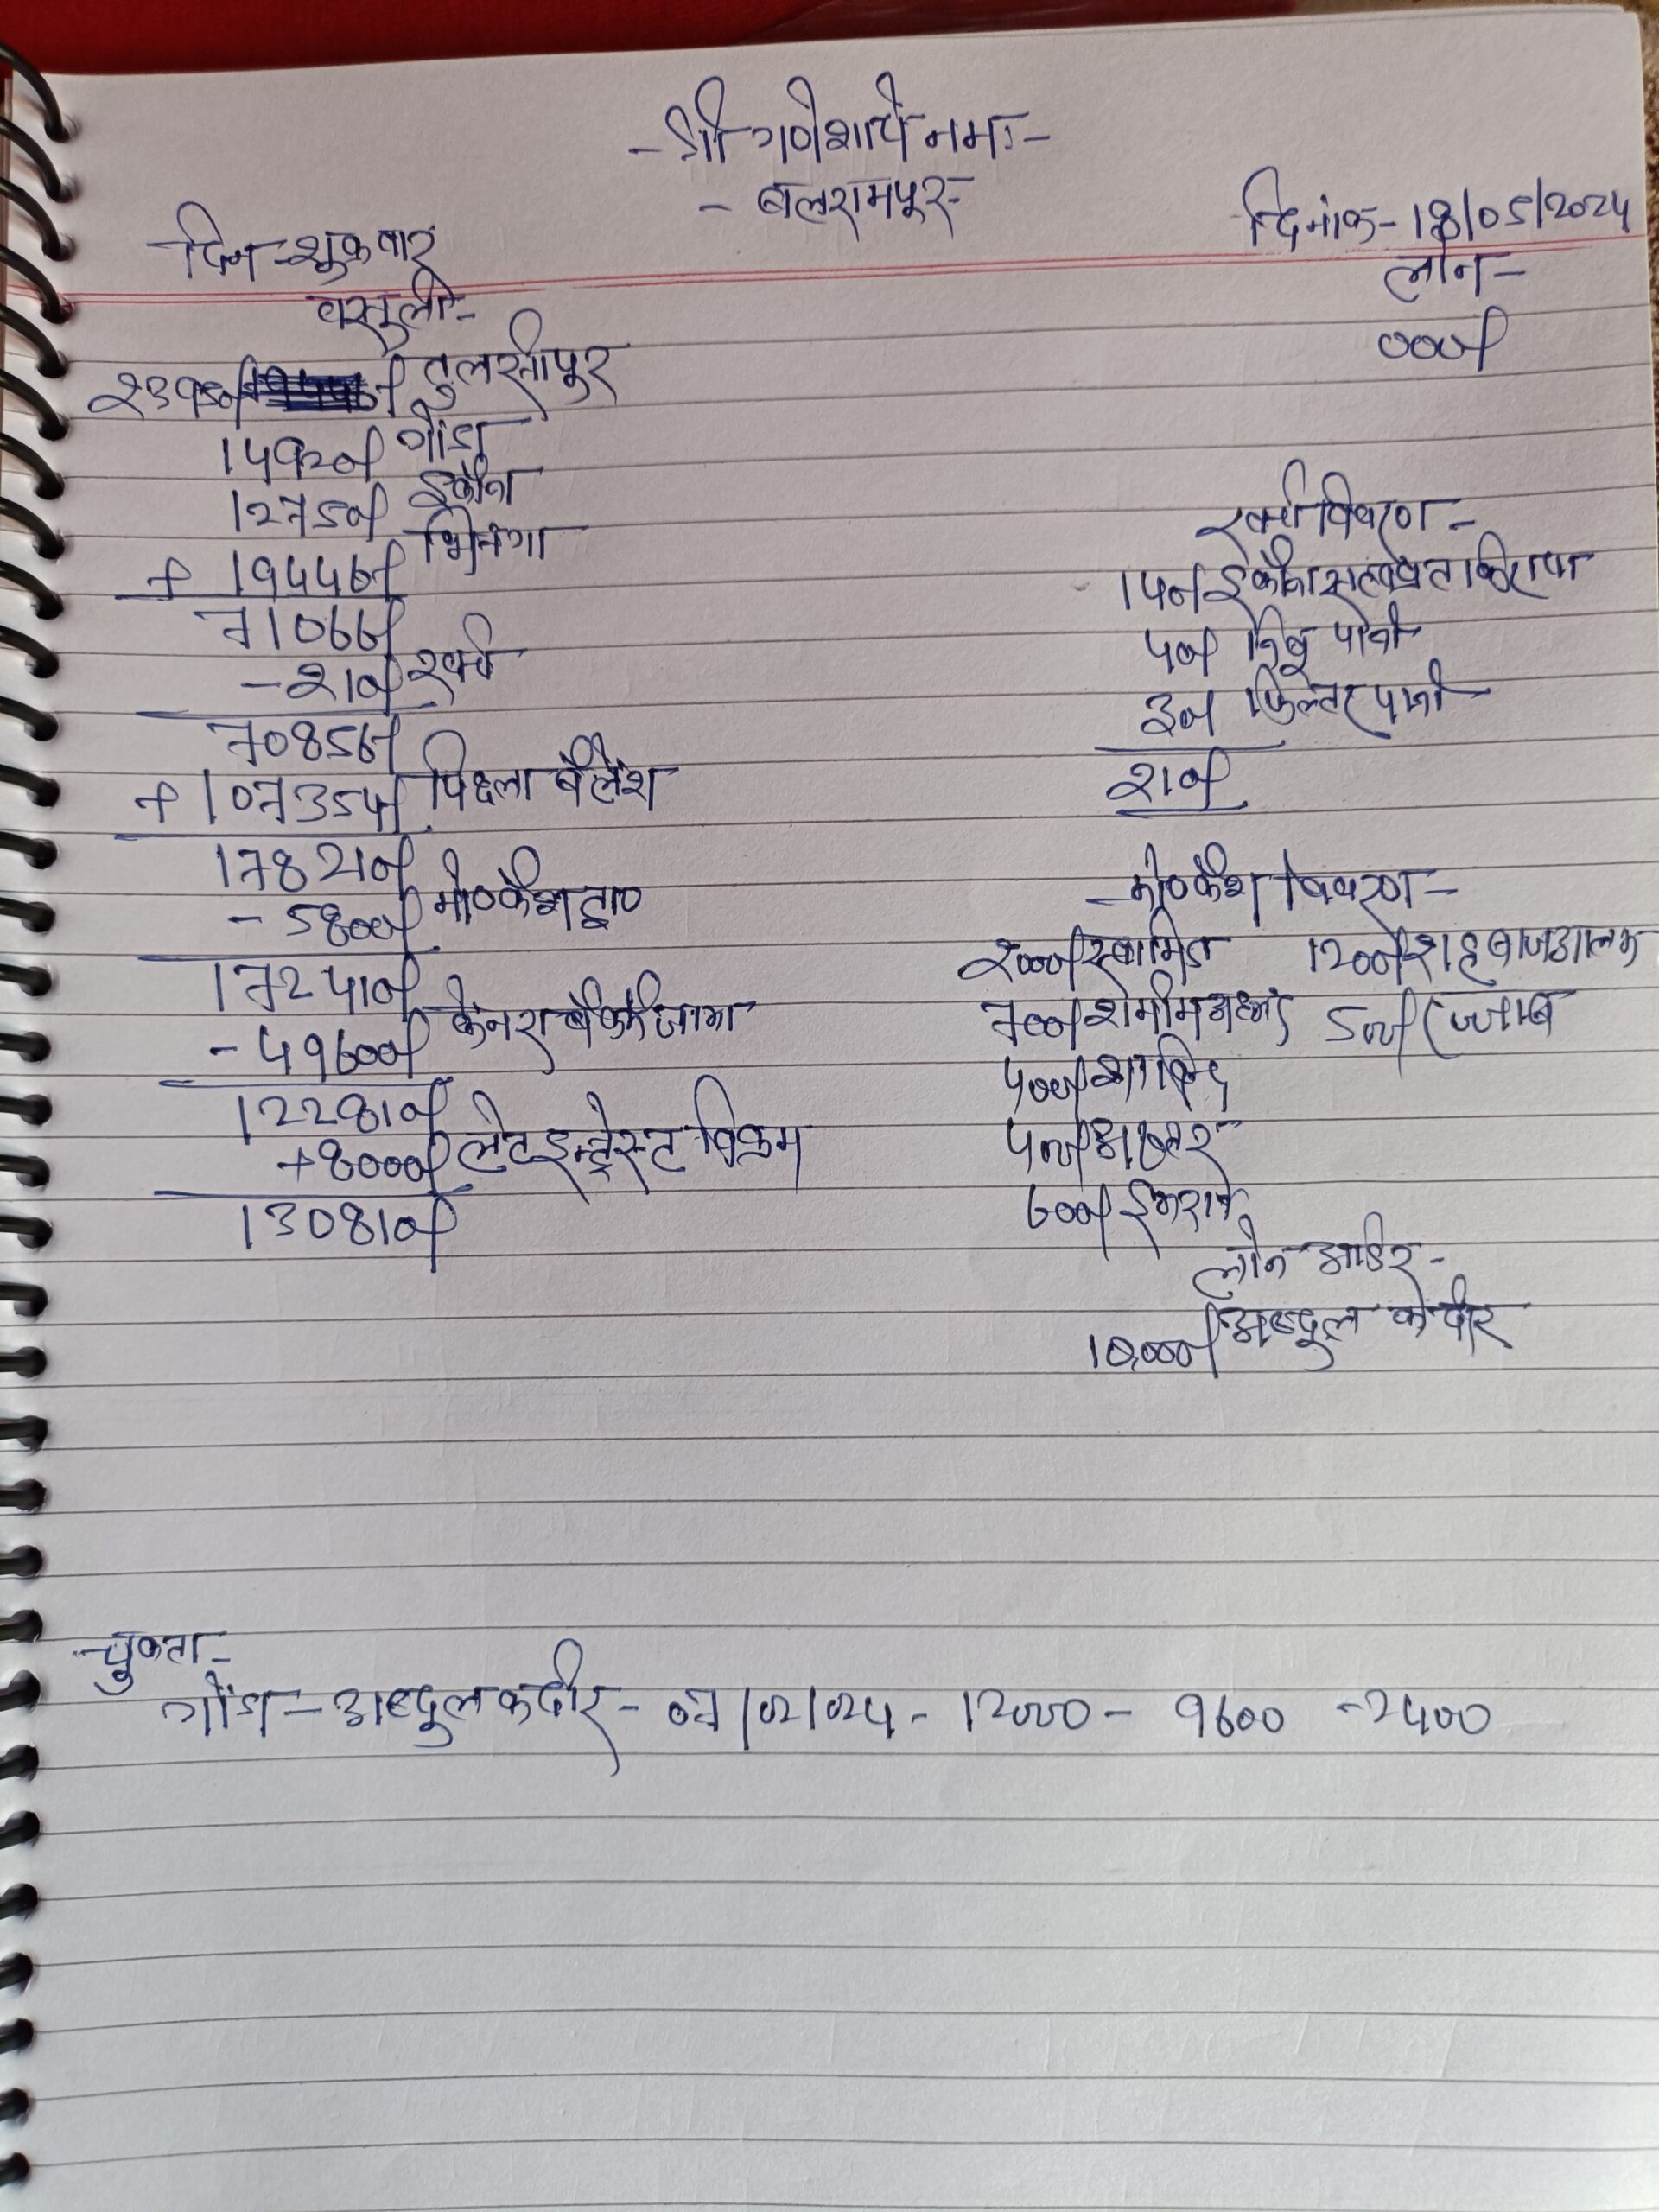 -श्री गणेशाय नमः-
- बलरामपुर-
दिन-शुक्रवार दिनांक-18/05/2024
वसुली- लोन-
23950/- तुलसीपुर 000/-
14920/- गोंडा
12750/- इकौना
+ 19446/- भिनगा
71066/-
-210/- खर्च
70856/-
+ 107354/- पिछ्ला बैलेंश
178210/-
- 5800/- मो०कैश द्वा०
172410/-
- 49600/- केनरा बैंक में जमा
122810/-
+8000/- लेट इन्ट्रेस्ट विक्रम
130810/-
खर्च विवरण-
140/- इकौना किराया
40/- पानी
30/- फिल्टर पानी
210/-
-मो०कैश विवरण-
2000/- 1200/- शहबाज आलम
700/- शमीम अहमद 500/- रज्जाब
400/-
400/- अख्तर
600/- इमरान
लोन आर्डर-
10,000/- अब्दुल कदीर
-चुकता-
गोंडा-अब्दुल कदीर- 07/02/024- 12000- 9600 -2400